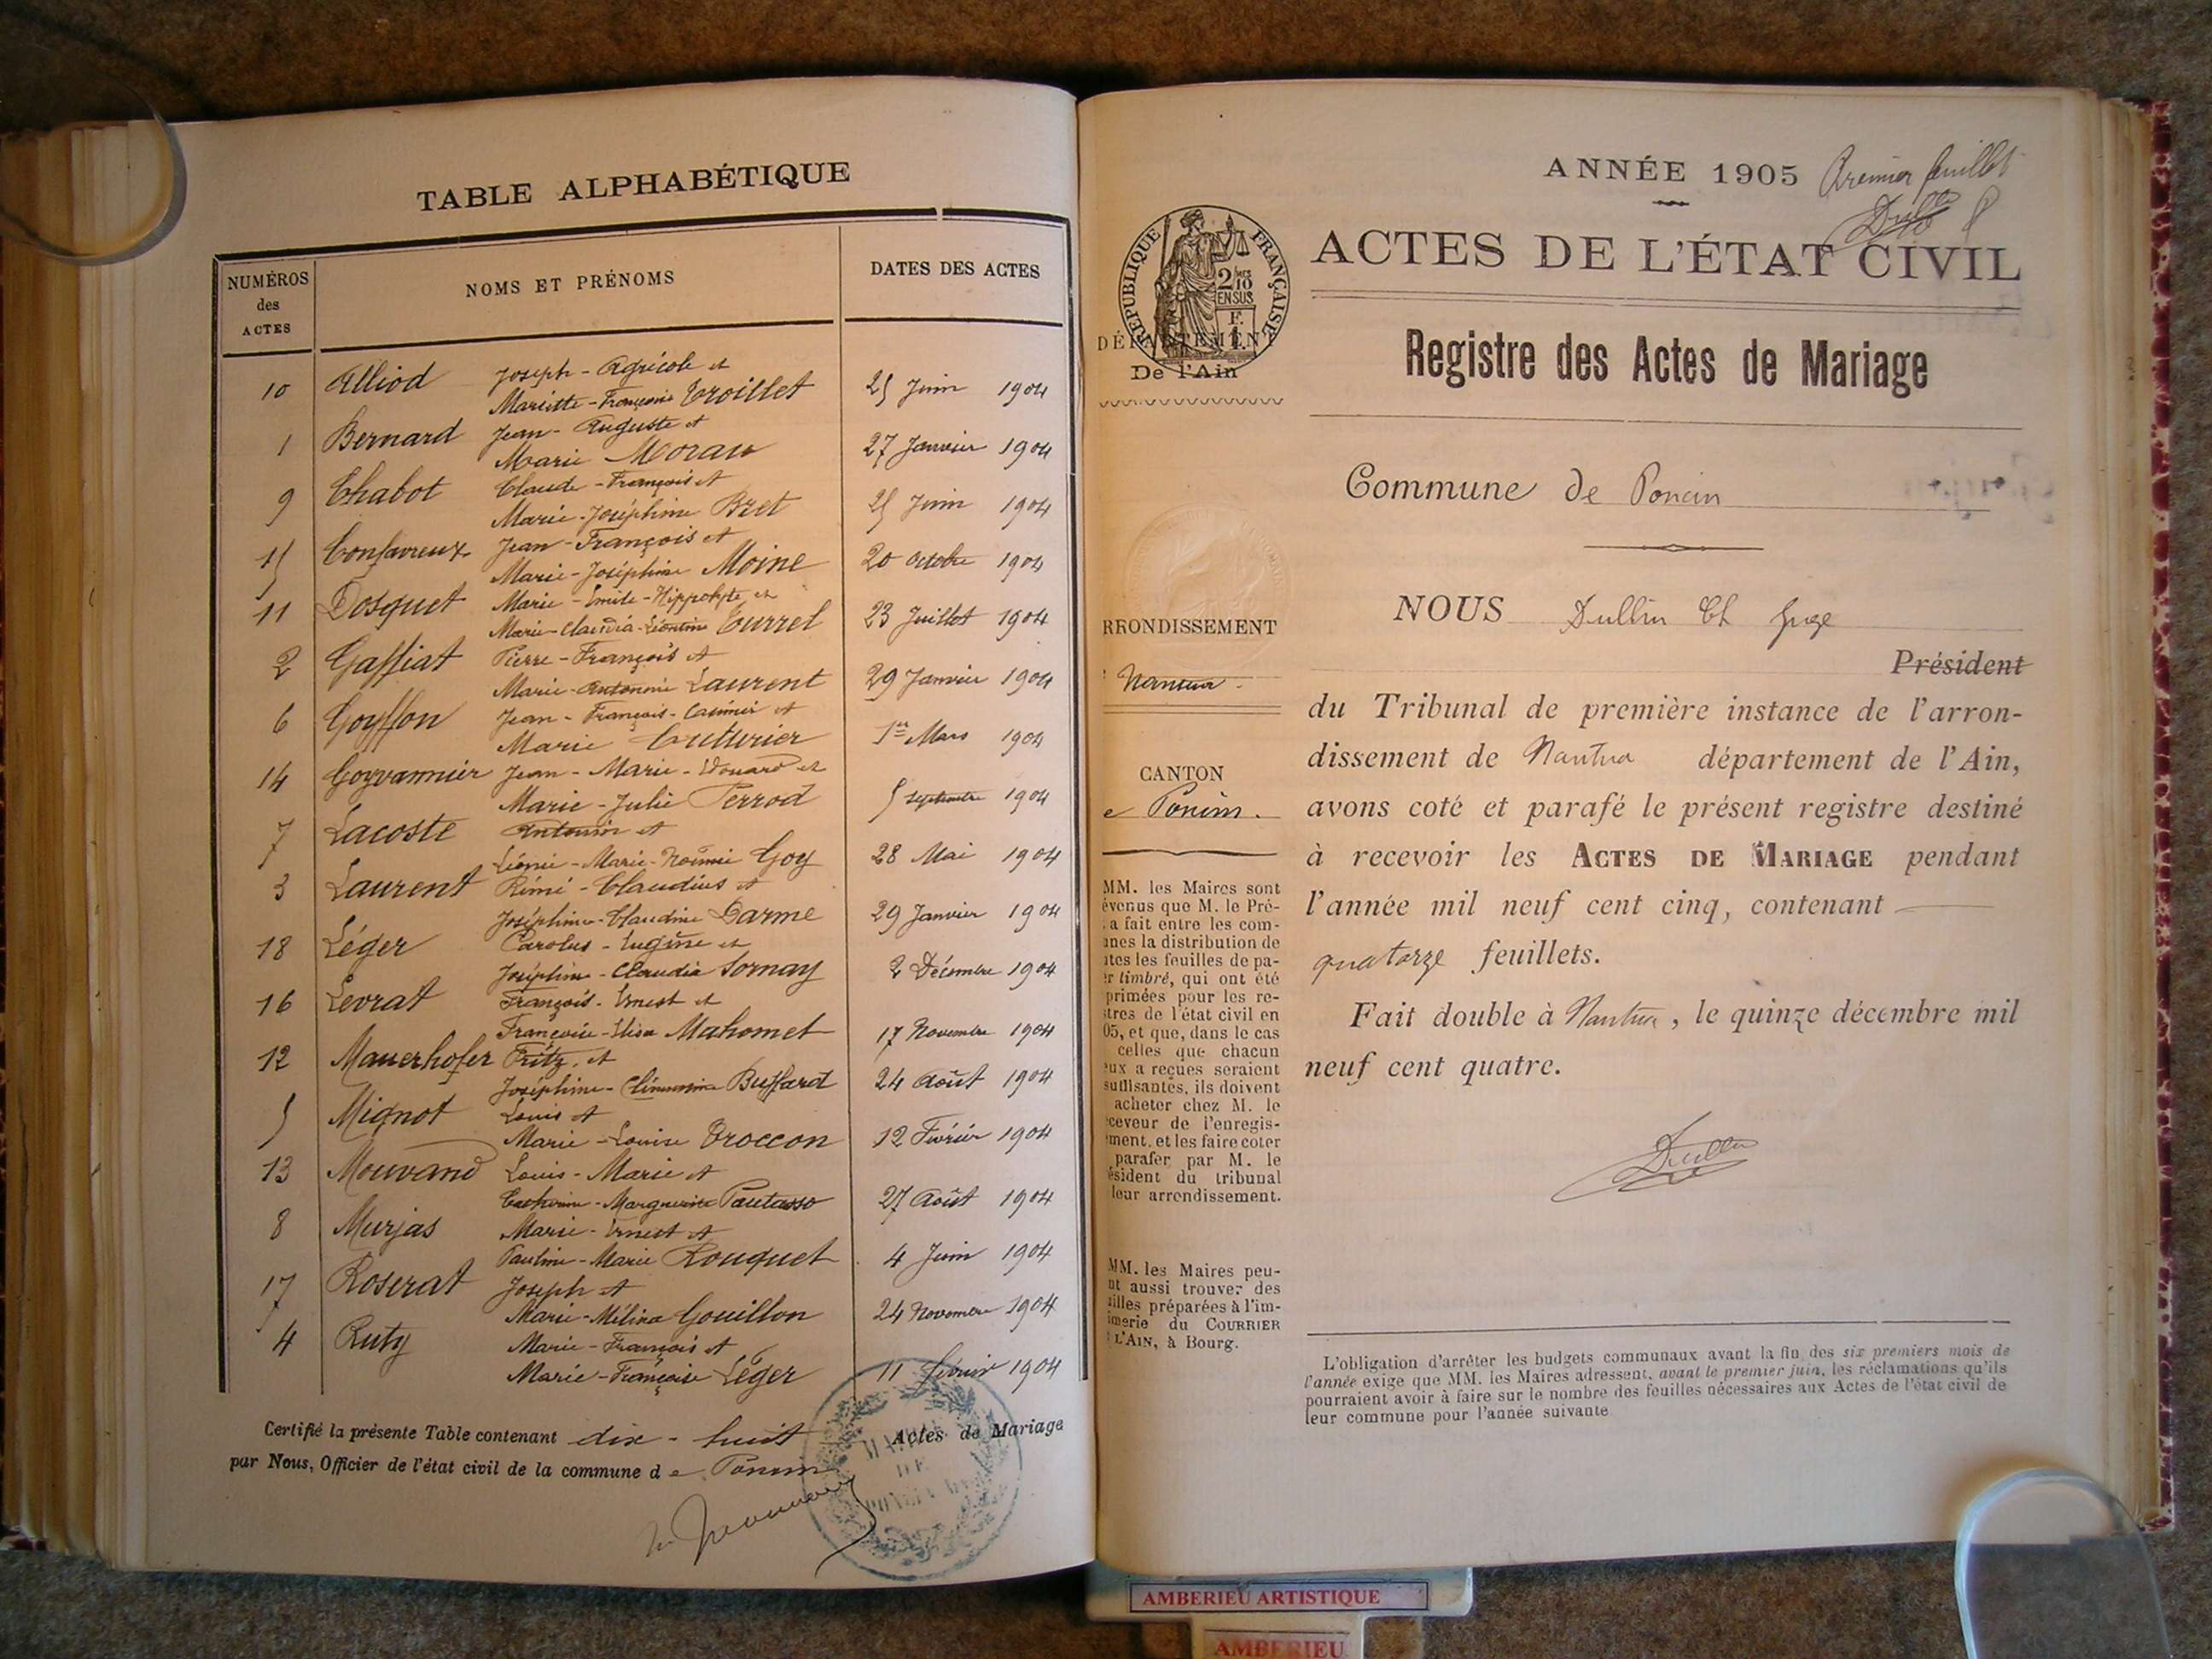 TABLE ALPHABÉTIQUE
NUMÉROS des ACTES
NOMS ET PRÉNOMS
DATES DES ACTES
10 Alliod Joseph-Agricole et
Mariette-Françoise Troillet 25 Juin 1904
1 Bernard Jean-Auguste et
Marie Morau 27 Janvier 1904
9 Chabot Claude-François et
Marie-Joséphine Bret 25 Juin 1904
15 Confavreux Jean-François et
Marie-Joséphine Moine 20 Octobre 1904
11 Dosquet Marie-Emile-Hippolyte et
Marie-Claudia-Léontine Curret 23 Juillet 1904
2 Gaffiat Pierre-François et
Marie-Antonnie Laurent 29 Janvier 1904
6 Goyffon Jean-François-Casimir et
Marie Cuturier 1er Mars 1904
14 Goyvannier Jean-Marie-Edouard et
Marie-Julie Perrod 5 Septembre 1904
7 Lacoste Antonin et
Léonie-Marie-Noémie Goy 28 Mai 1904
3 Laurent Rémi-Claudius et
Joséphine-Claudine Darme 29 Janvier 1904
18 Léger Carolus-Eugène et
Joséphine-Claudia Sornay 2 Décembre 1904
16 Levrat François-Ernest et
Françoise-Elisa Mahomet 17 Novembre 1904
12 Mauerhofer Fritz et
Joséphine-Clémentine Buffard 24 Août 1904
5 Mignot Louis et
Marie-Louise Troccon 12 Février 1904
13 Mouvand Louis-Marie et
Catherine-Marguerite Pautasso 27 Août 1904
8 Murjas Marie-Ernest et
Pauline-Marie Rouquet 4 Juin 1904
17 Roserat Joseph et
Marie-Mélina Gouillon 24 Novembre 1904
4 Ruty Marie-François et
Marie-Françoise Léger 11 Février 1904
Certifié la présente Table contenant dix-huit Actes de Mariage
par Nous, Officier de l'état civil de la commune de Poncin
MAIRIE
DE
PONCIN
ANNÉE 1905 Premier feuillet
ACTES DE L'ÉTAT CIVIL
RÉPUBLIQUE FRANÇAISE
2/10 EN SUS
F. 1.
DÉPARTEMENT
De l'Ain
Registre des Actes de Mariage
Commune de Poncin
NOUS Dullin Ch Juge
Président
RRONDISSEMENT
Nantua
CANTON
e Poncin.
du Tribunal de première instance de l'arron-
dissement de Nantua département de l'Ain,
avons coté et parafé le présent registre destiné
à recevoir les ACTES DE MARIAGE pendant
l'année mil neuf cent cinq, contenant
quatorze feuillets.
Fait double à Nantua, le quinze décembre mil
neuf cent quatre.
Dullin
MM. les Maires sont
évenus que M. le Pré-
a fait entre les com-
unes la distribution de
ites les feuilles de pa-
r timbré, qui ont été
primées pour les re-
tres de l'état civil en
05, et que, dans le cas
celles que chacun
eux a reçues seraient
suffisantes, ils doivent
acheter chez M. le
ceveur de l'enregis-
ment, et les faire coter
parafer par M. le
ésident du tribunal
leur arrondissement.
MM. les Maires peu-
nt aussi trouver des
illes préparées à l'im-
imerie du COURRIER
L'AIN, à Bourg.
L'obligation d'arrêter les budgets communaux avant la fin des six premiers mois de
l'année exige que MM. les Maires adressent, avant le premier juin, les réclamations qu'ils
pourraient avoir à faire sur le nombre des feuilles nécessaires aux Actes de l'état civil de
leur commune pour l'année suivante
AMBERIEU ARTISTIQUE
AMBERIEU